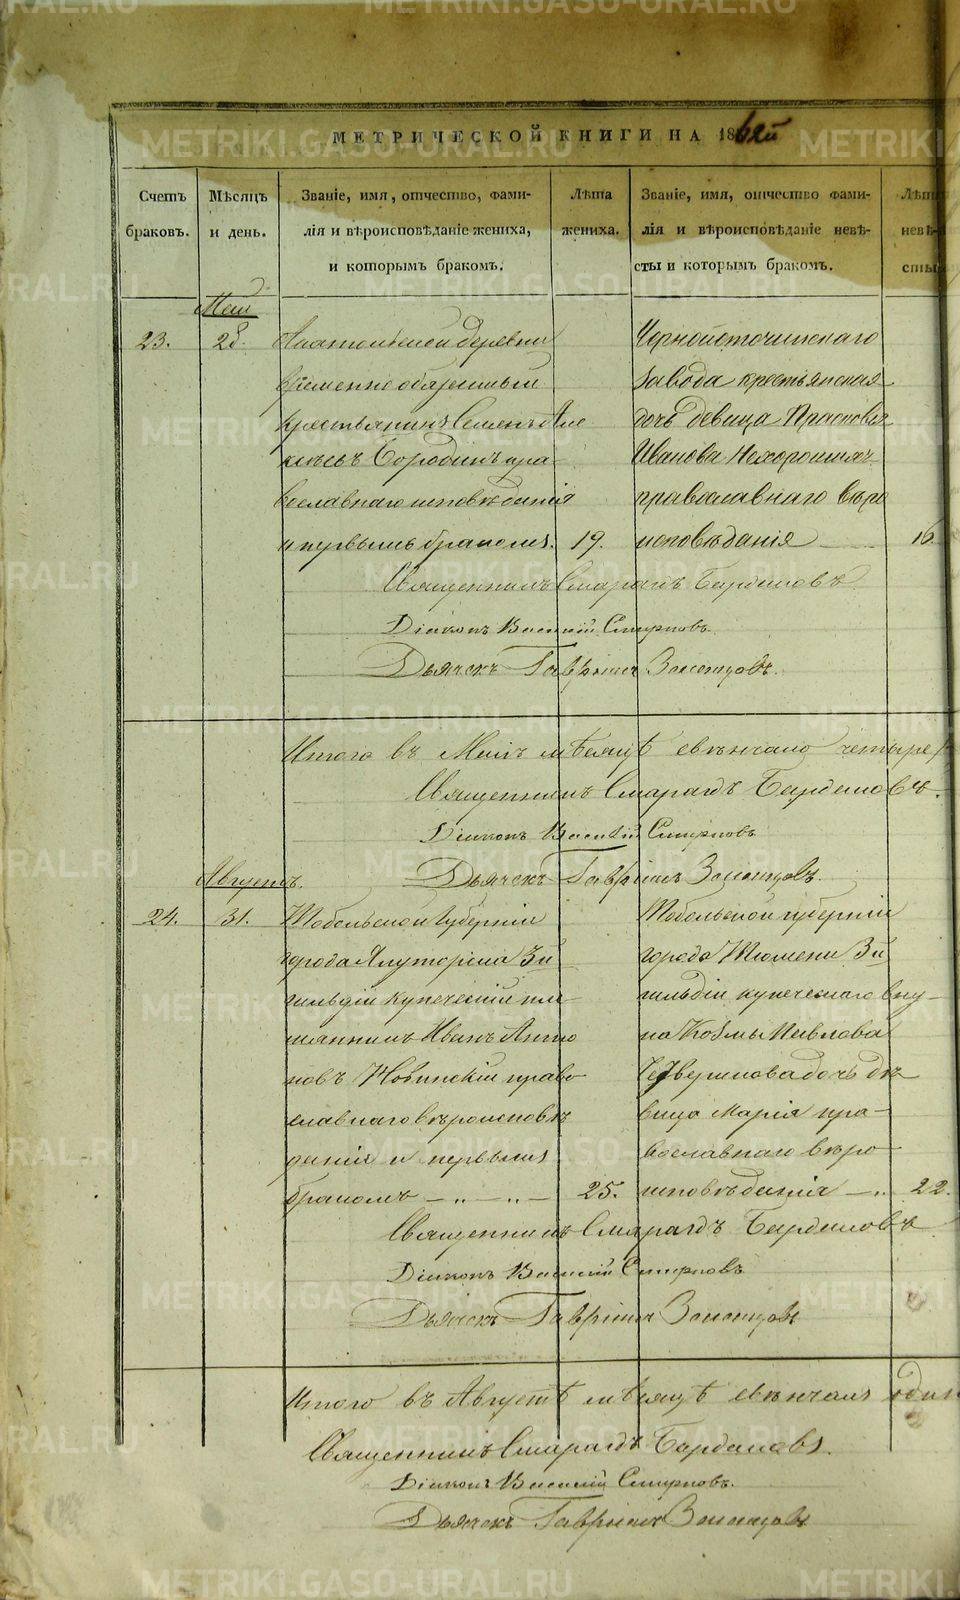 МЕТРИЧЕСКОЙ КНИГИ НА 1862й
Счетъ браковъ.
Мѣсяцъ и день.
Званіе, имя, отчество, фами-
лія и вѣроисповѣданіе жениха,
и которымъ бракомъ.
Лѣта
жениха.
Званіе, имя, отчество фами-
лія и вѣроисповѣданіе невѣ-
сты и которымъ бракомъ.
Лѣта
невѣ-
сты
Маій
23.
28.
деревни
временно обязанный
крестьянинъ Семенъ Але
Бородинъ пра-
вославнаго исповѣданія
и первымъ бракомъ.
19.
Черноисточинскаго
завода крестьянская
дочь девица Прасковья
Иванова Нехорошихъ
православнаго вѣро
исповѣданія
16
Священникъ Смарагдъ
Діаконъ Василій Смирновъ.
Дьячекъ Гавріилъ
Итого въ Маіѣ мѣсяцѣ свѣнчано четыре
Священникъ Смарагдъ
Діаконъ Василій Смирновъ
Дьячекъ Гавріилъ
Августъ.
24.
31.
Тобольской Губерніи
города Ялуторска 3й
гильдіи купеческій пле
мянникъ Иванъ Анто
новъ право
славнаго вѣроисповѣ
данія и первымъ
бракомъ — „ — „ —
25.
Тобольской губерніи
города Тюмени 3й
гильдіи купеческаго вну-
ка Козмы Павлова
дочь дѣ
вица Марія пра-
вославнаго вѣро
исповѣданія — „
22.
Священникъ Смарагдъ
Діаконъ Василій Смирновъ
Дьячекъ Гавріилъ
Итого въ Августѣ мѣсяцѣ свѣнчанъ один
Священникъ Смарагдъ
Діаконъ Василій Смирновъ.
Дьячекъ Гавріилъ
METRIKI.GASO-URAL.RU